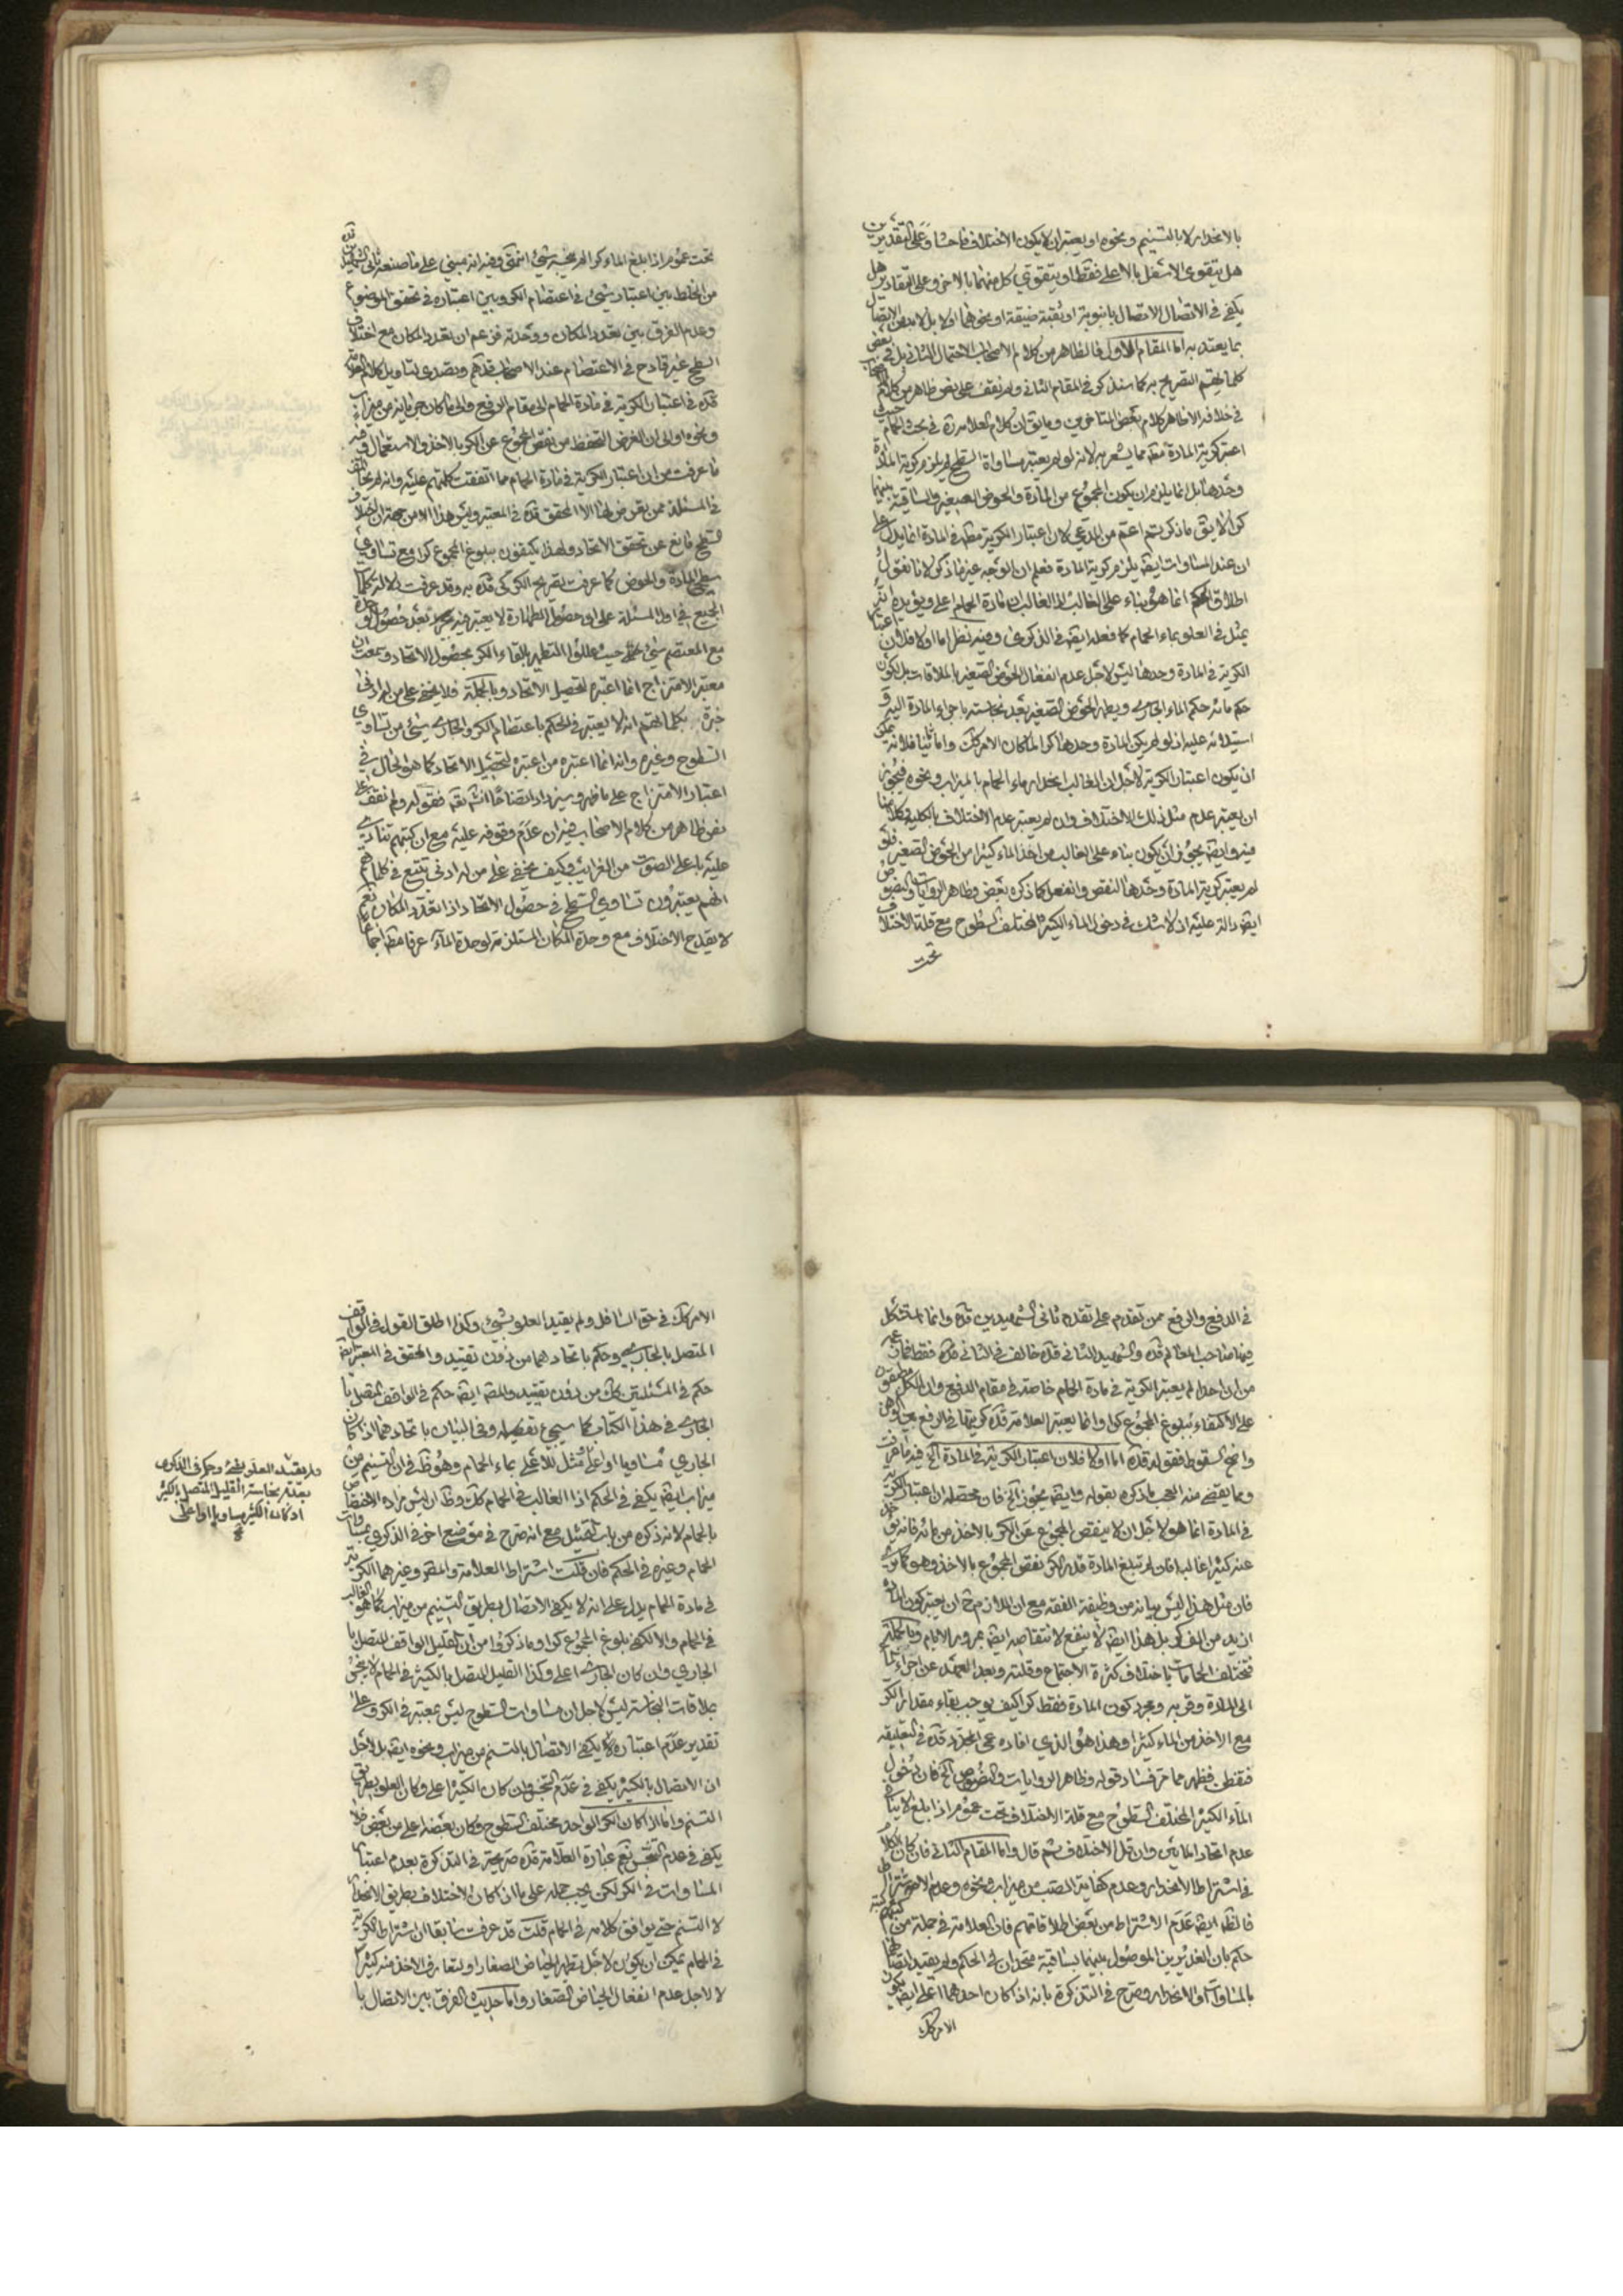 بالانحدار لا بالتسنيم ونحوه او يعتبر ان لا يكون الاختلاف فاحشا وعلى التقديرين
هل يتقوى الاسفل بالاعلى فقط او يتقوى كل منهما بالاخر وعلى التقادير هل
يكفي في الاتصال الاتصال بانبوبة او ثقبة ضيقة او نحوهما او لا بل لا بد من الاتصال
بما يعتد به اما المقام الاول فالظاهر من كلام الاصحاب الاحتمال الثاني بل في بعض
كلماتهم التصريح به كما سنذكره في المقام الثاني ولم نقف على نص ظاهر من
في خلافه الا ظاهر كلام بعض المتاخرين وما يق ان كلام العلامة ره في بحث الحمام حيث
اعتبر كرية المادة مط مما يشعر به لانه لو لم يعتبر مساواة السطح لم يلزم كرية المادة
وحدها بل انما يلزم ان يكون المجموع من المادة والحوض الصغير والساقية بينهما
كرا لا يق ما ذكرتم اعم من المدعي لان اعتبار الكرية مط في المادة انما يدل على
ان عند المساوات ايض يلزم كرية المادة فعلم ان الوجه غير ما ذكر لانا نقول
اطلاق الحكم انما هو بناء على الغالب اذ الغالب ان مادة الحمام اعلى ويؤيده انه
يمثل في العلو بماء الحمام كما فعله ايض في الذكرى وفيه نظر اما اولا فلان اعتبار
الكرية في المادة وحدها ليس لاجل عدم انفعال الحوض الصغير بالملاقات بل لكون
حكم مائه حكم الماء الجاري ويطهر الحوض الصغير بعد نجاسته باجراء المادة اليه و
استيلائه عليه اذ لو لم يكن المادة وحدها كرا لما كان الامر كك واما ثانيا فلانه يمكن
ان يكون اعتبار الكرية لاجل ان الغالب انحدار ماء الحمام بالميزاب ونحوه فيجوز
ان يعتبر عدم مثل ذلك الاختلاف وان لم يعتبر عدم الاختلاف بالكلية وكلامنا
فيه وايض يجوز ان يكون بناء على الغالب من اخذ الماء كثيرا من الحوض الصغير فلو
لم يعتبر كرية المادة وحدها لنقص وانفعل كما ذكره بعض وظاهر الروايات والنصوص
ايض دالة عليه اذ لا شك في دخول الماء الكثير المختلف السطوح مع قلة الاختلاف
تحت
تحت عموم اذا بلغ الماء كرا لم ينجسه شيء انتهى وفيه انه مبني على ما صنعه ثاني الشهيدين قده
من الخلط بين اعتبار شيء في اعتصام الكر وبين اعتباره في تحقق الموضوع
وعدم الفرق بين تعدد المكان ووحدته فزعم ان تعدد المكان مع اختلاف
السطح غير قادح في الاعتصام عند الاصحاب قدهم وتصدى لتاويل كلام العلامة
قده في اعتبار الكرية في مادة الحمام الى مقام الرفع والى ما كان جريانه من ميزاب
ونحوه او الى ان الغرض التحفظ من نقص المجموع عن الكر بالاخذ والاستعمال وفيه
ما عرفت من ان اعتبار الكرية في مادة الحمام مما اتفقت كلمتهم عليه وانه لم يخالف
في المسئلة ممن تعرض لها الا المحقق قده في المعتبر وليس هذا الا من جهة ان اختلاف
السطح مانع عن تحقق الاتحاد ولهذا يكتفون ببلوغ المجموع كرا مع تساوي
سطحي المادة والحوض كما عرفت تصريح الكركي قده به وقد عرفت دلالة كلمات
الجميع في اول المسئلة على ان حصول الطهارة لا يعتبر فيه بعد حصول الوحدة
مع المعتصم شيء حيث عللوا التطهير بالقاء الكر بحصول الاتحاد وسمعت ان
معتبر الامتزاج انما اعتبره لتحصيل الاتحاد وبالجملة فلا يخفى على من له ادنى
خبرة بكلماتهم انه لا يعتبر في الحكم باعتصام الكر والجاري شيء من تساوي
السطوح وغيره وانه انما اعتبره من اعتبره لتحصيل الاتحاد كما هو الحال في
اعتبار الامتزاج على ما ظهر وسيزداد اتضاحا انش تعه فقوله ولم نقف على
نص ظاهر من كلام الاصحاب فيه ان عدم وقوفه عليه مع ان كتبهم تنادي
عليه باعلى الصوت من الغرائب وكيف يخفى على من له ادنى تتبع في كلماتهم
انهم يعتبرون تساوي السطح في حصول الاتحاد اذا تعدد المكان نعم
لا يقدح الاختلاف مع وحدة المكان المستلزمة لوحدة الماء عرفا مط اجماعا
في الدفع والرفع ممن تقدم على تقدم ثاني الشهيدين قده وانما استشكل
فيها صاحب المعالم قده والشهيد الثاني قده خالف في الثاني منه فقط فما
من ان احدا لم يعتبر الكرية في مادة الحمام خاصة في مقام الدفع وان الكل متفقون
على الاكتفاء ببلوغ المجموع كرا وانما يعتبر العلامة قده كريتها في الرفع
واضح السقوط فقوله قده اما اولا فلان اعتبار الكرية في المادة الخ فيه ما عرفت
ومما يقضى منه العجب ما ذكره بقوله وايض يجوز الخ فان محصله ان اعتبار الكرية
في المادة انما هو لاجل ان لا ينقص المجموع عن الكر بالاخذ من مائه فانه يؤخذ
عنه كثيرا غالبا فان لم تبلغ المادة قدر الكر نقص المجموع بالاخذ وهو كما ترى
فان مثل هذا ليس بيانه من وظيفة الفقه مع ان اللازم ح ان يعتبر كون المادة
ازيد من الف كر بل هذا ايض لا ينفع لانتقاصه ايض بمرور الايام وبالجملة
فتختلف الحمامات باختلاف كثرة الاجتماع وقلته وبعد العهد عن اجراء الماء
الى المادة وقربه ومجرد كون المادة فقط كرا كيف يوجب بقاء مقدار الكر
مع الاخذ من الماء كثيرا وهذا هو الذي افاده عمى المجدد قده في تعليقه
فتفطن فظهر مما مر فساد قوله وظاهر الروايات والنصوص الخ فان دخول
الماء الكثير المختلف السطوح مع قلة الاختلاف تحت عموم اذا بلغ لا ينافي
عدم اتحاد المائين وان قل الاختلاف ثم قال واما المقام الثاني فان كان الكلام
في اشتراط الانحدار وعدم كفاية الصب من ميزاب ونحوه وعدم الاشتراط
فالظ ايض عدم الاشتراط من بعض اطلاقاتهم فان العلامة في جملة من كتبه
حكم بان الغديرين الموصول بينهما بساقية متحدان في الحكم ولم يقيد ايضا
بالمساوات او الانحدار وصرح في التذكرة بانه اذا كان احدهما اعلى ايض يكون
الامر كك
الامر كك في حق السافل ولم يقيد العلو بشيء وكذا اطلق القول في الواقف
المتصل بالجاري وحكم باتحادهما من دون تقييد والمحقق في المعتبر ايض
حكم في المسئلتين كك من دون تقييد والمص ايض حكم في الواقف المتصل با
الجاري في هذا الكتاب كما سيجيء تفصيله وفي البيان باتحادهما اذا كان
الجاري مساويا او اعلى ومثل للاعلى بماء الحمام وهو ظ في ان التسنيم من
ميزاب ايض يكفي في الحكم اذا الغالب في الحمام كك وظ ان ليس مراده الاختصاص
بالحمام لانه ذكره من باب التمثيل مع انه صرح في موضع اخر في الذكرى بمساوات
الحمام وغيره في الحكم فان قلت اشتراط العلامة والمص وغيرهما الكرية
في مادة الحمام يدل على انه لا يكفي الاتصال بطريق التسنيم من ميزاب كما هو الغالب
في الحمام والا لكفى بلوغ المجموع كرا وما ذكروا من ان القليل الواقف المتصل با
الجاري وان كان الجاري اعلى وكذا القليل المتصل بالكثير في الحمام لا ينجس
بملاقات النجاسة ليس لاجل ان مساوات السطوح ليس بمعتبر في الكر وعلى
تقدير عدم اعتباره يكفي الاتصال بالتسنم من ميزاب ونحوه ايض بل لاجل
ان الاتصال بالكثير يكفي في عدم التنجس وان كان الكثير اعلى وكان العلو بطريق
التسنم واما اذا كان الكر الواحد مختلف السطوح وكان بعضه اعلى من بعض فلا
يكفي في عدم التنجس نعم عبارة العلامة قده صريحة في التذكرة بعدم اعتبار
المساوات في الكر لكن يجب حمله على ما اذا كان الاختلاف بطريق الانحدار
لا التسنم حتى يوافق كلامه في الحمام قلت قد عرفت سابقا ان اشتراط الكرية
في الحمام يمكن ان يكون لاجل تطهير الحياض الصغار او لتعارف الاخذ منه كثيرا
لا لاجل عدم انفعال الحياض الصغار واما حديث الفرق بين الاتصال با
ولم يقيد العلو بشيء وحكم في الذكرى
بعدم نجاسة القليل المتصل بالكثير
اذ كان الكثير مساويا او اعلى